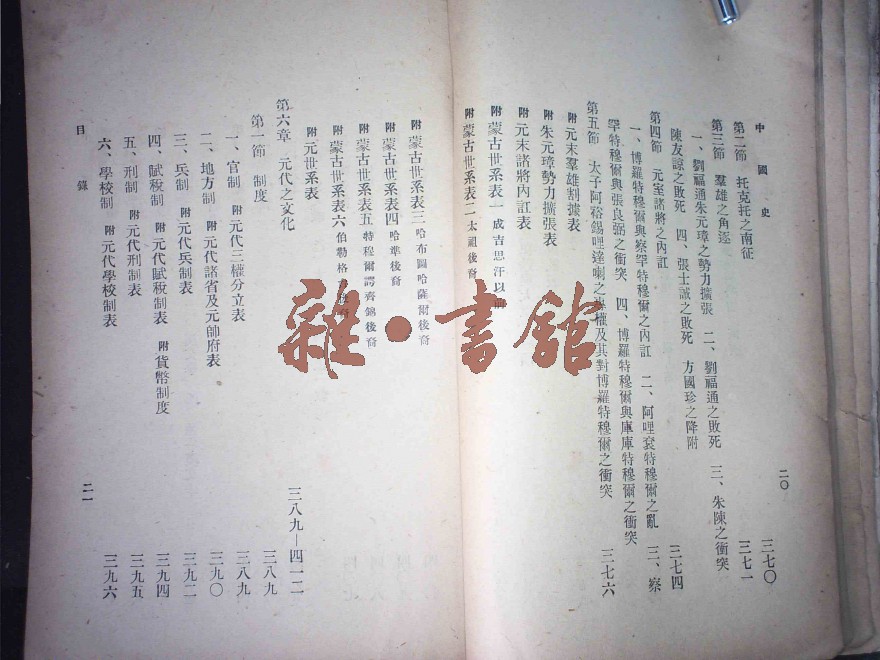 中國史
二〇
第二節 托克托之南征 三七〇
第三節 羣雄之角逐 三七一
一、劉福通朱元璋之勢力擴張 二、劉福通之敗死 三、朱陳之衝突
陳友諒之敗死 四、張士誠之敗死 方國珍之降附
第四節 元室諸將之內訌 三七四
一、博羅特穆爾與察罕特穆爾之內訌 二、阿哩袞特穆爾之亂 三、察
罕特穆爾與張良弼之衝突 四、博羅特穆爾與庫庫特穆爾之衝突
第五節 太子阿裕錫哩達喇之專權及其對博羅特穆爾之衝突 三七六
附元末羣雄割據表
附朱元璋勢力擴張表
附元末諸將內訌表
附蒙古世系表一 成吉思汗以前
附蒙古世系表二 太祖後裔
附蒙古世系表三 哈布圖哈薩爾後裔
附蒙古世系表四 哈準後裔
附蒙古世系表五 特穆爾諤齊錦後裔
附蒙古世系表六 伯勒格 後裔
附元世系表
第六章 元代之文化 三八九—四一二
第一節 制度 三八九
一、官制 附元代三權分立表 三八九
二、地方制 附元代諸省及元帥府表 三九〇
三、兵制 附元代兵制表 三九二
四、賦稅制 附元代賦稅制表 附貨幣制度 三九四
五、刑制 附元代刑制表 三九五
六、學校制 附元代學校制表 三九六
目錄
二一
雜·書館